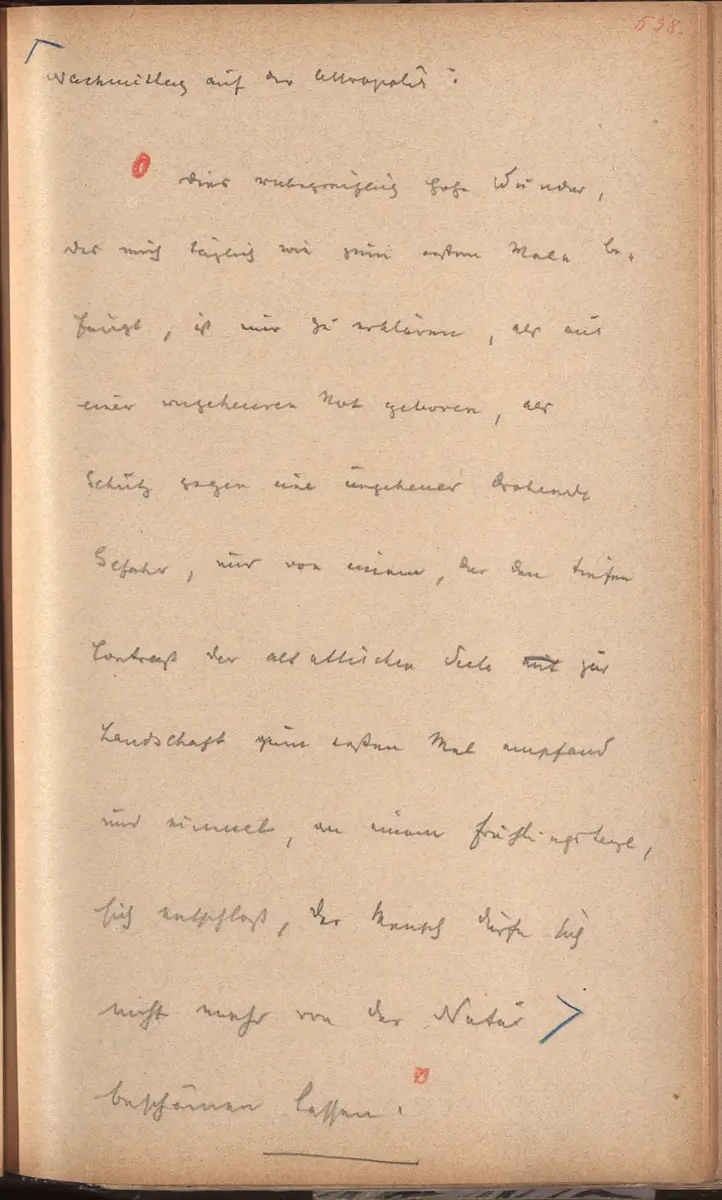 538.
Nachmittag auf der Akropolis:
Dies unbegreiflich hohe Wunder,
das mich täglich wie zum ersten Male be-
zeugt, ist nur zu erklären, als aus
einer ungeheuren Not geboren, als
Schutz gegen eine ungeheuer drohende
Gefahr, nur von einem, der den tiefen
Contrast der als attischen Seele mit zur
Landschaft zum ersten Mal empfand
und einmal, an einem Frühlingstage,
sich entschloß, der Mensch dürfe sich
nicht mehr von der Natur
beschämen lassen.